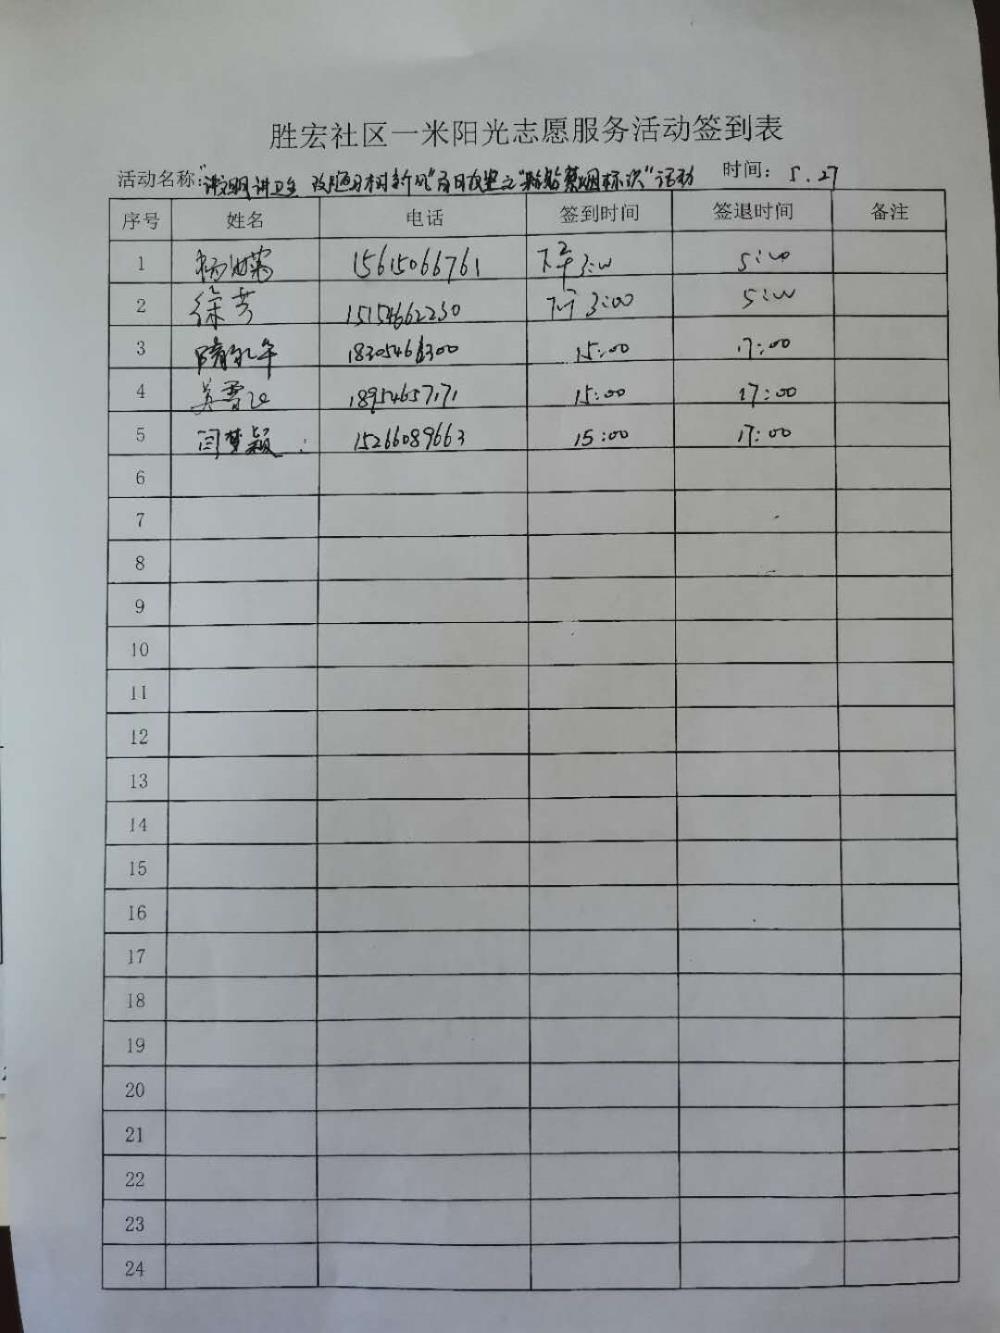 胜宏社区一米阳光志愿服务活动签到表
活动名称:"讲文明讲卫生 改陋习树新风"百日攻坚之"粘贴禁烟标识"活动 时间: 5.27
序号 姓名 电话 签到时间 签退时间 备注
1 杨 15615066761 下午3:00 5:00
2 徐芳 15154662230 下午3:00 5:00
3 隋 午 18305461300 15:00 17:00
4 雪 18954657171 15:00 17:00
5 闫梦颖 15266089663 15:00 17:00
6
7
8
9
10
11
12
13
14
15
16
17
18
19
20
21
22
23
24